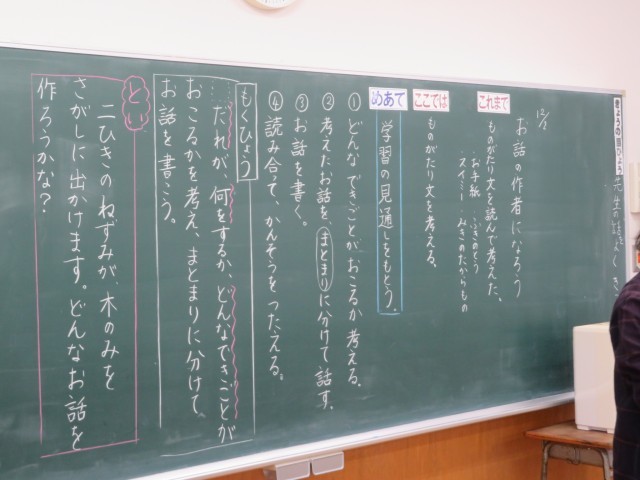 きょうの目ひょう
先生の話をよくき
12/2
お話の作者になろう
これまで
ものがたり文を読んで考えた。
お手紙
スイミー
みきのたからもの
ここでは
ものがたり文を考える。
めあて
学習の見通しをもとう。
①どんなできごとがおこるか考える。
②考えたお話を、まとまりに分けて話す。
③お話を書く。
④読み合って、かんそうをつたえる。
もくひょう
だれが、何をするか、どんなできごとが
おこるかを考え、まとまりに分けて、
お話を書こう。
とい
二ひきのねずみが、木のみを
さがしに出かけます。どんなお話を
作ろうかな?